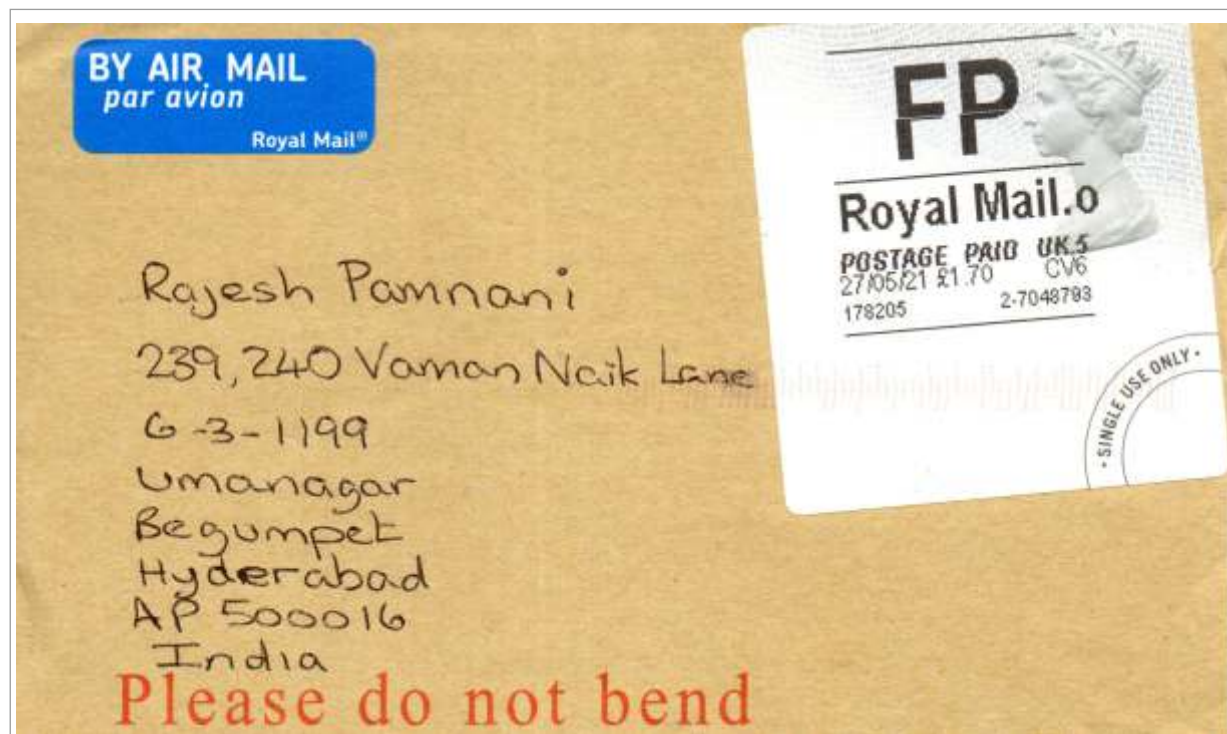 BY AIR MAIL
par avion
Royal Mail®
FP
Royal Mail.o
POSTAGE PAID UK.5
27/05/21 £1.70 CV6
178205 2-7048793
· SINGLE USE ONLY ·
Rajesh Pamnani
239, 240 Vaman Naik Lane
6-3-1199
Umanagar
Begumpet
Hyderabad
AP 500016
India
Please do not bend